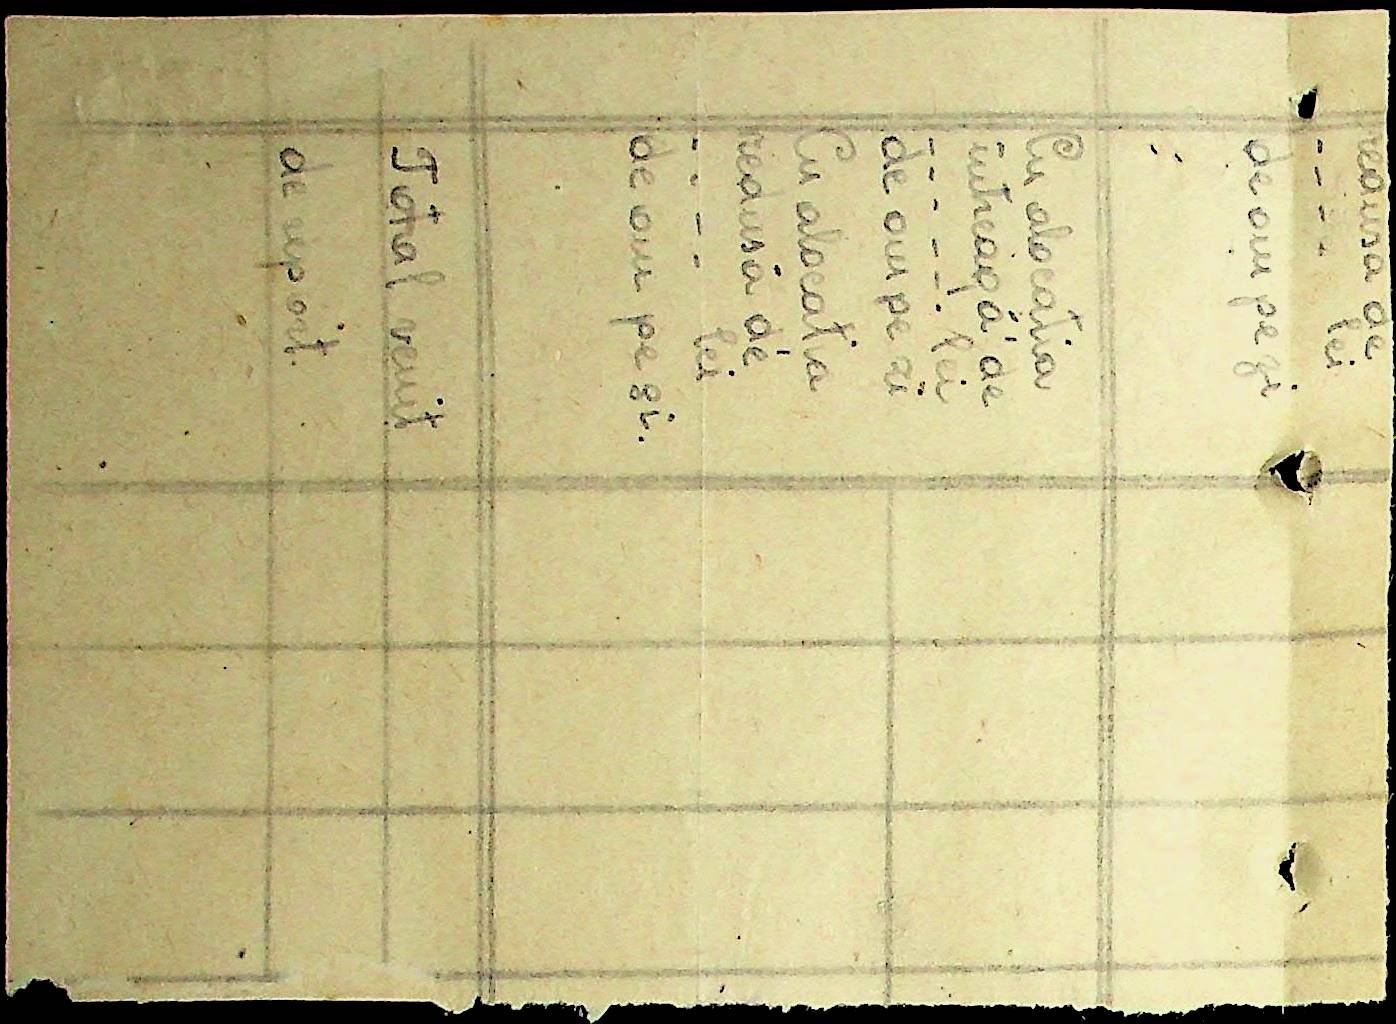 redusă de
- - - - lei
de om pe zi
" "
Cu alocatia
intreagă de
- - - - - lei
de om pe zi
Cu alocatia
redusă de
- - - - lei
de om pe zi.
Total venit
de report.